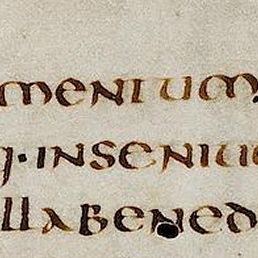 mentum
q·inseniu
llabened